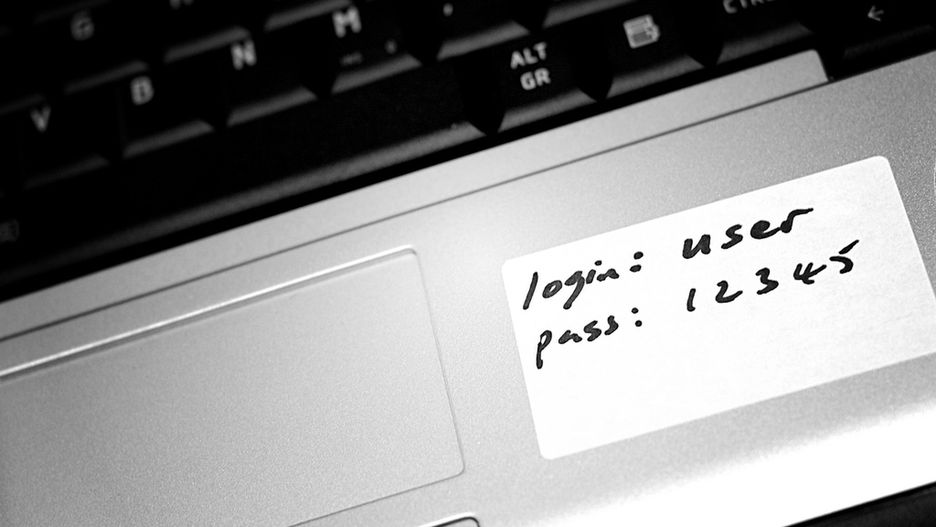 G
M
V B N ALT GR CTRL
login: user
pass: 12345